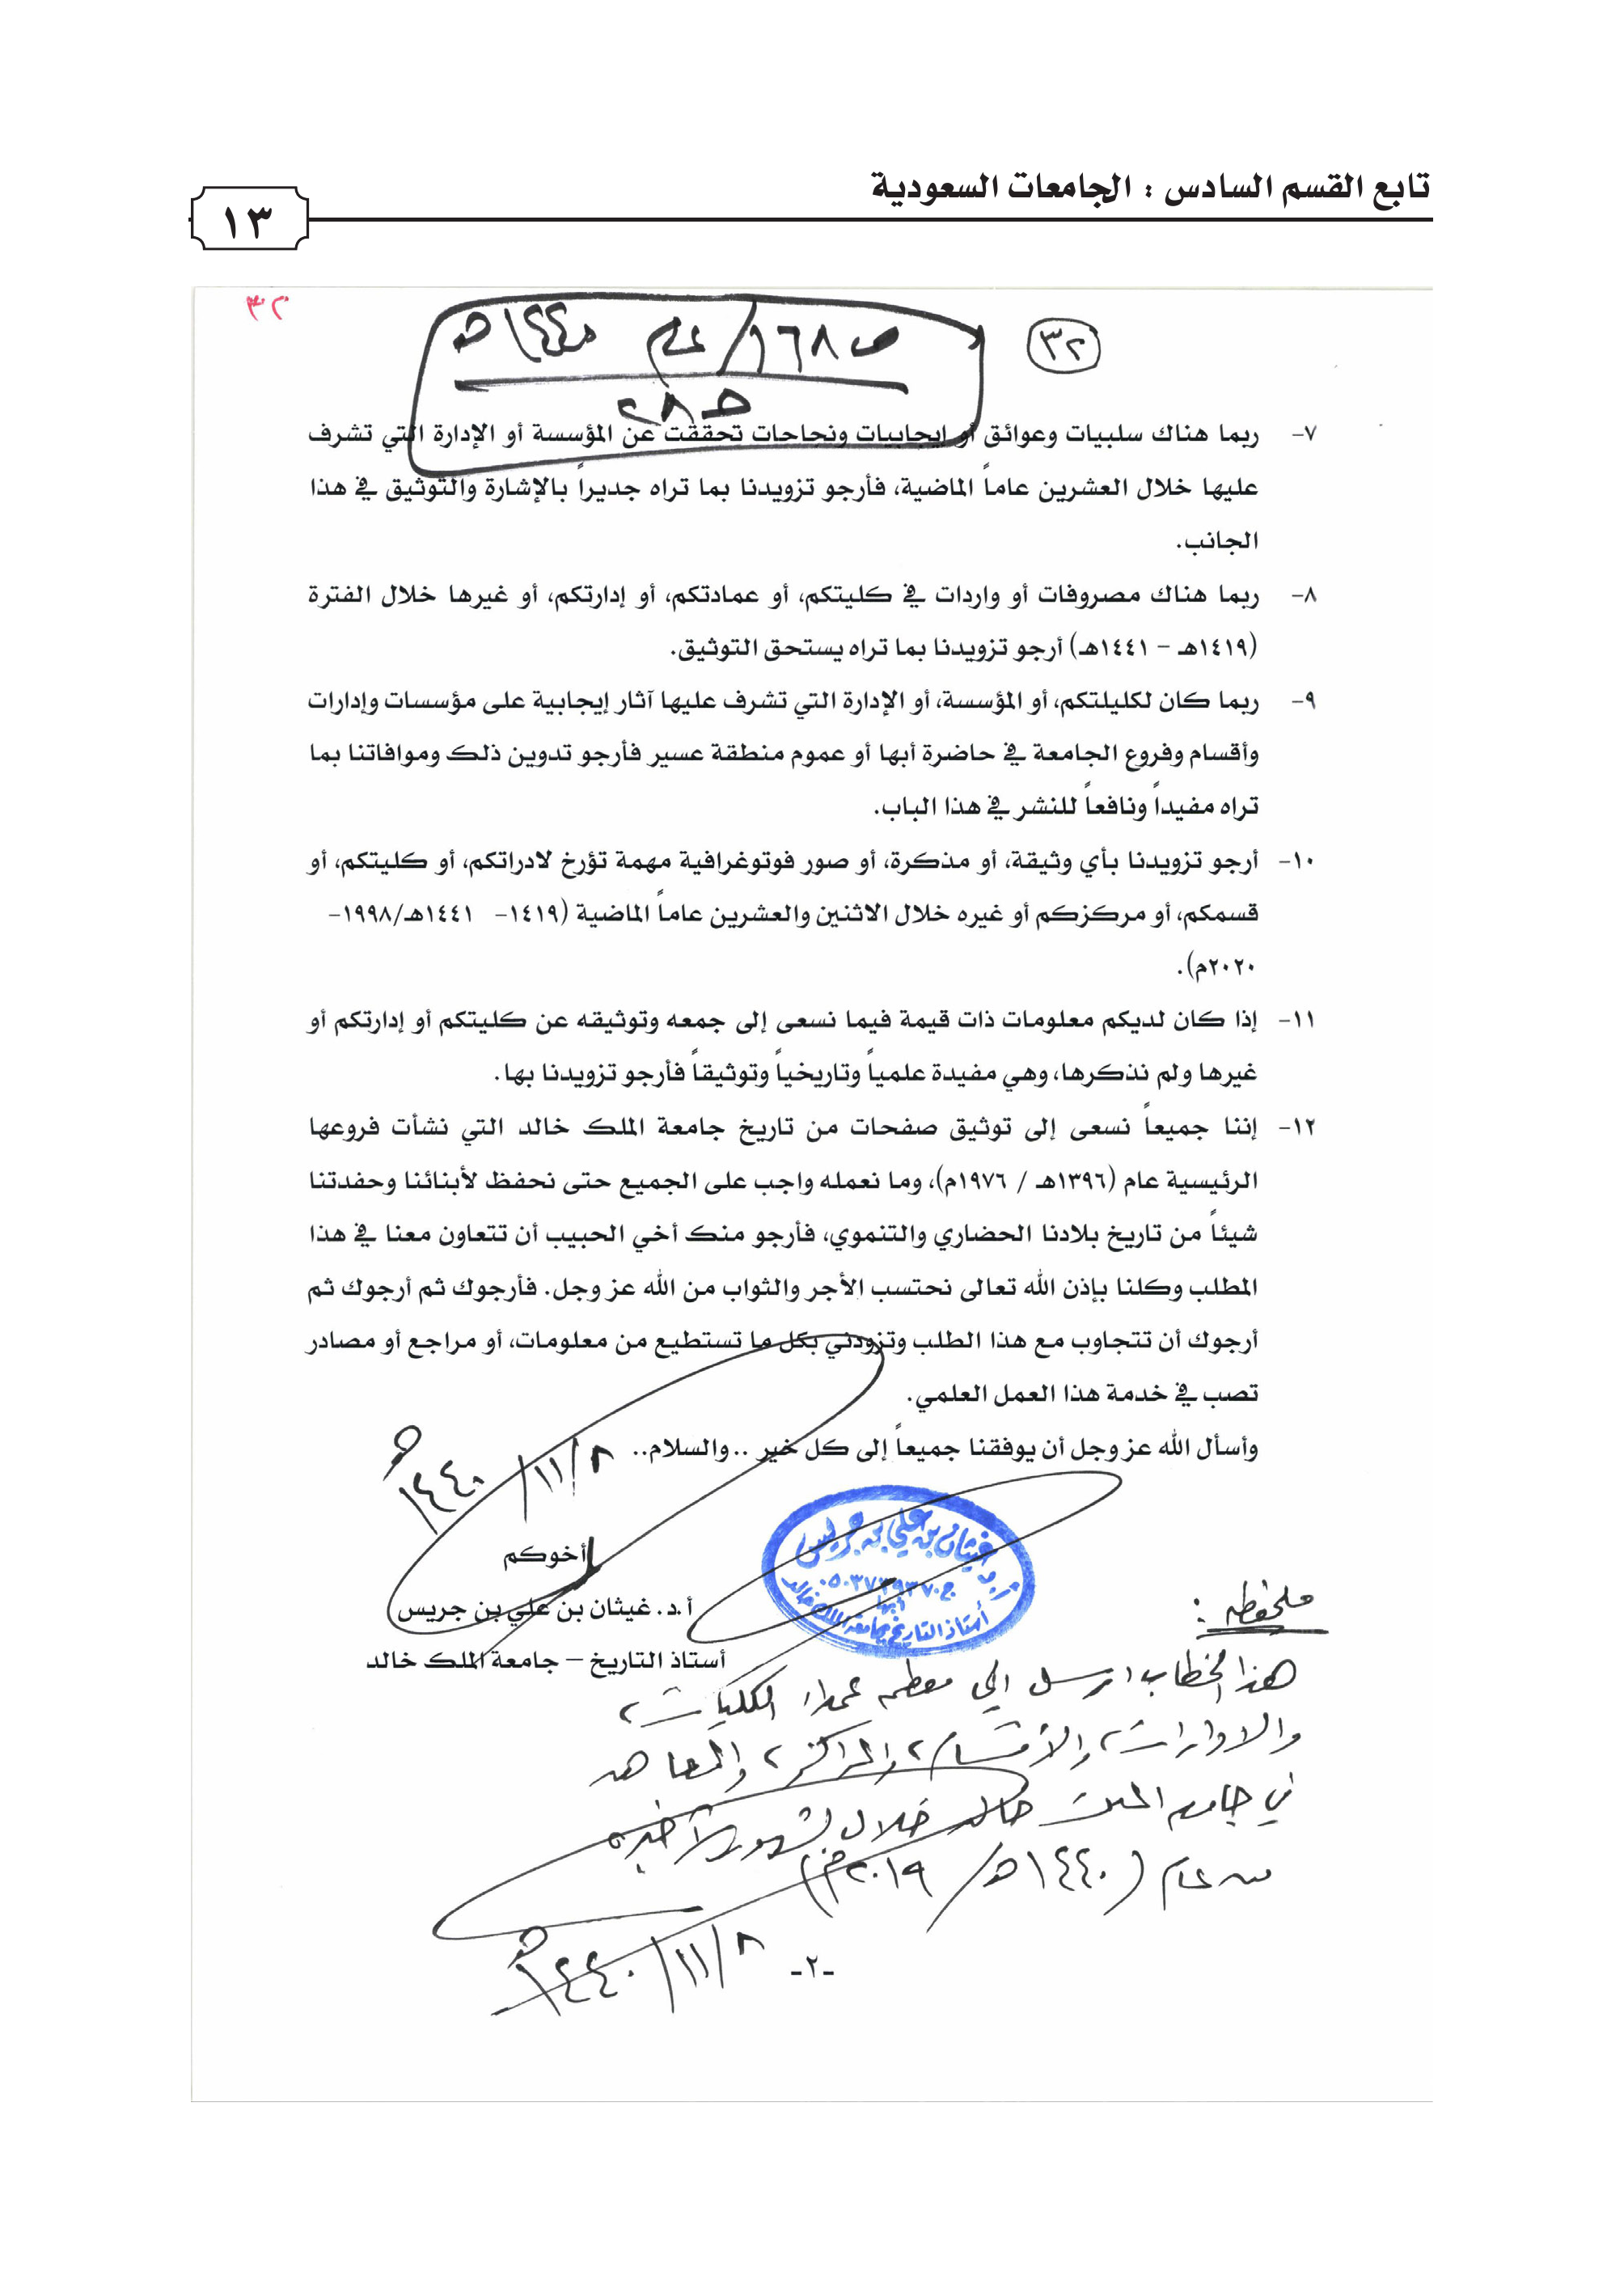 تابع القسم السادس : الجامعات السعودية
١٣
٣٢
٣٢
ص ١٦٨/ عام ١٤٤٠هـ
٧- ربما هناك سلبيات وعوائق أو إيجابيات ونجاحات تحققت عن المؤسسة أو الإدارة التي تشرف
عليها خلال العشرين عاماً الماضية، فأرجو تزويدنا بما تراه جديراً بالإشارة والتوثيق في هذا
الجانب.
٨- ربما هناك مصروفات أو واردات في كليتكم، أو عمادتكم، أو إدارتكم، أو غيرها خلال الفترة
(١٤١٩هـ – ١٤٤١هـ) أرجو تزويدنا بما تراه يستحق التوثيق.
٩- ربما كان لكليلتكم، أو المؤسسة، أو الإدارة التي تشرف عليها آثار إيجابية على مؤسسات وإدارات
وأقسام وفروع الجامعة في حاضرة أبها أو عموم منطقة عسير فأرجو تدوين ذلك وموافاتنا بما
تراه مفيداً ونافعاً للنشر في هذا الباب.
١٠- أرجو تزويدنا بأي وثيقة، أو مذكرة، أو صور فوتوغرافية مهمة تؤرخ لادراتكم، أو كليتكم، أو
قسمكم، أو مركزكم أو غيره خلال الاثنين والعشرين عاماً الماضية (١٤١٩- ١٤٤١هـ/١٩٩٨-
٢٠٢٠م).
١١- إذا كان لديكم معلومات ذات قيمة فيما نسعى إلى جمعه وتوثيقه عن كليتكم أو إدارتكم أو
غيرها ولم نذكرها، وهي مفيدة علمياً وتاريخياً وتوثيقاً فأرجو تزويدنا بها.
١٢- إننا جميعاً نسعى إلى توثيق صفحات من تاريخ جامعة الملك خالد التي نشأت فروعها
الرئيسية عام (١٣٩٦هـ / ١٩٧٦م)، وما نعمله واجب على الجميع حتى نحفظ لأبنائنا وحفدتنا
شيئاً من تاريخ بلادنا الحضاري والتنموي، فأرجو منك أخي الحبيب أن تتعاون معنا في هذا
المطلب وكلنا بإذن الله تعالى نحتسب الأجر والثواب من الله عز وجل. فأرجوك ثم أرجوك ثم
أرجوك أن تتجاوب مع هذا الطلب وتزودني بكل ما تستطيع من معلومات، أو مراجع أو مصادر
تصب في خدمة هذا العمل العلمي.
وأسأل الله عز وجل أن يوفقنا جميعاً إلى كل خير .. والسلام..
٨/١١/١٤٤٠هـ
أخوكم
أ.د. غيثان بن علي بن جريس
أستاذ التاريخ – جامعة الملك خالد
أ.د. غيثان بن علي بن جريس
ج.٠٥٠٣٧٣٩٣٧٠
أبها
أستاذ التاريخ بجامعة الملك خالد
ملحوظه :
هذا الخطاب ارسل الي معظم عمداء الكليات،
والادارات، والأقسام، والمراكز، والمعاهد
في جامعه الملك خالد خلال الشهور الأخيره
من عام (١٤٤٠هـ/ ٢٠١٩م)
٨/١١/١٤٤٠هـ
-٢-